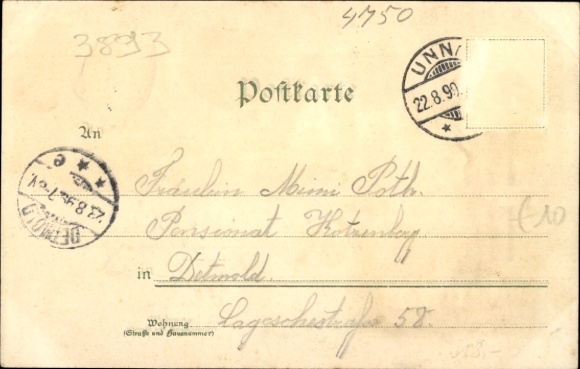 4750
3893
UNNA
22.8.99.
Postkarte
An
DETMOLD
23.8.99.7-8V.
Fräulein Mimi Poth.
Pensionat Kotzenberg
in Detmold.
Lagesche strafse 58.
Wohnung
(Straße und Hausnummer)